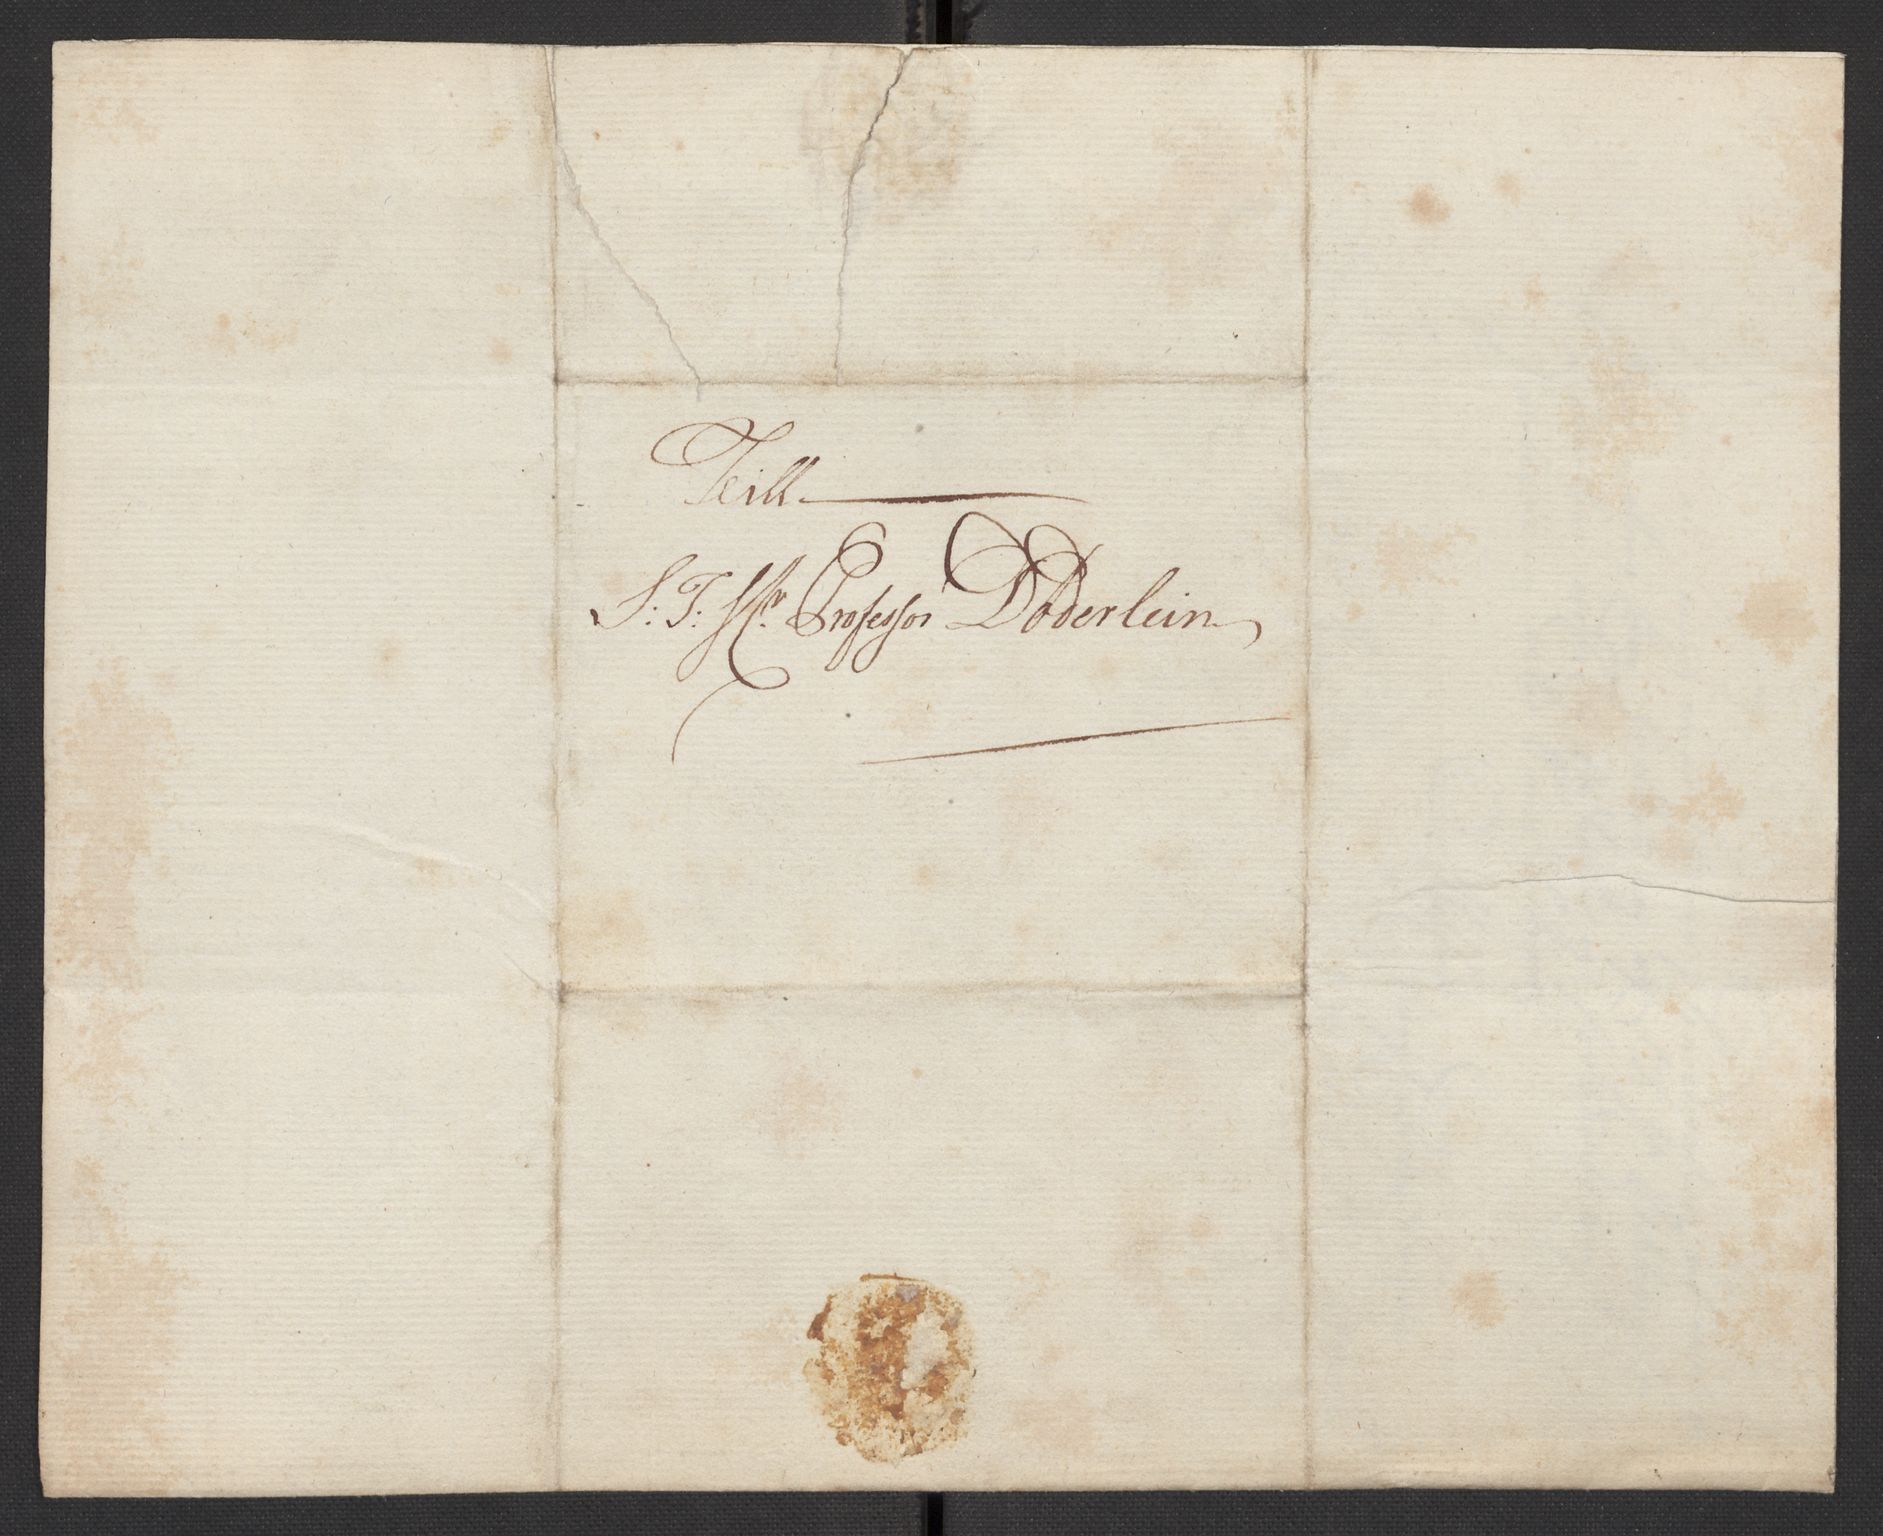 Teill
S. T. Hr. Professor Döderlein